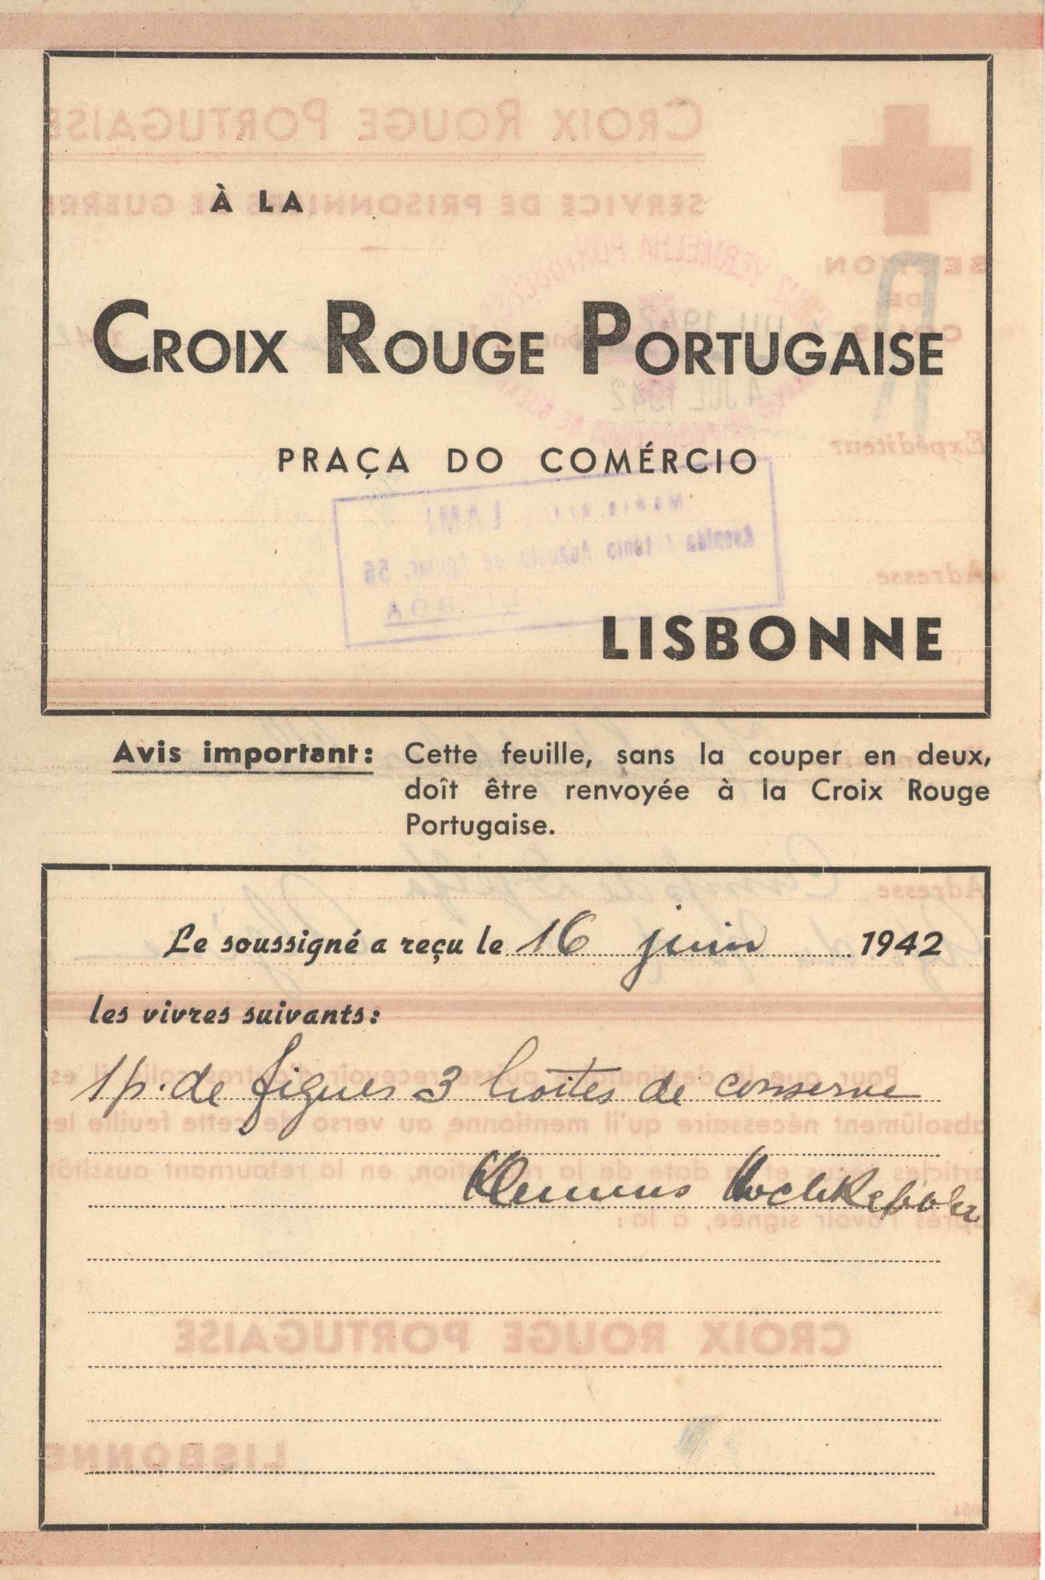 À LA
CROIX ROUGE PORTUGAISE
PRAÇA DO COMÉRCIO
LISBONNE
Avis important: Cette feuille, sans la couper en deux,
doît être renvoyée à la Croix Rouge
Portugaise.
Le soussigné a reçu le 16 juin 1942
les vivres suivants:
1 p. de figues 3 boîtes de conserve